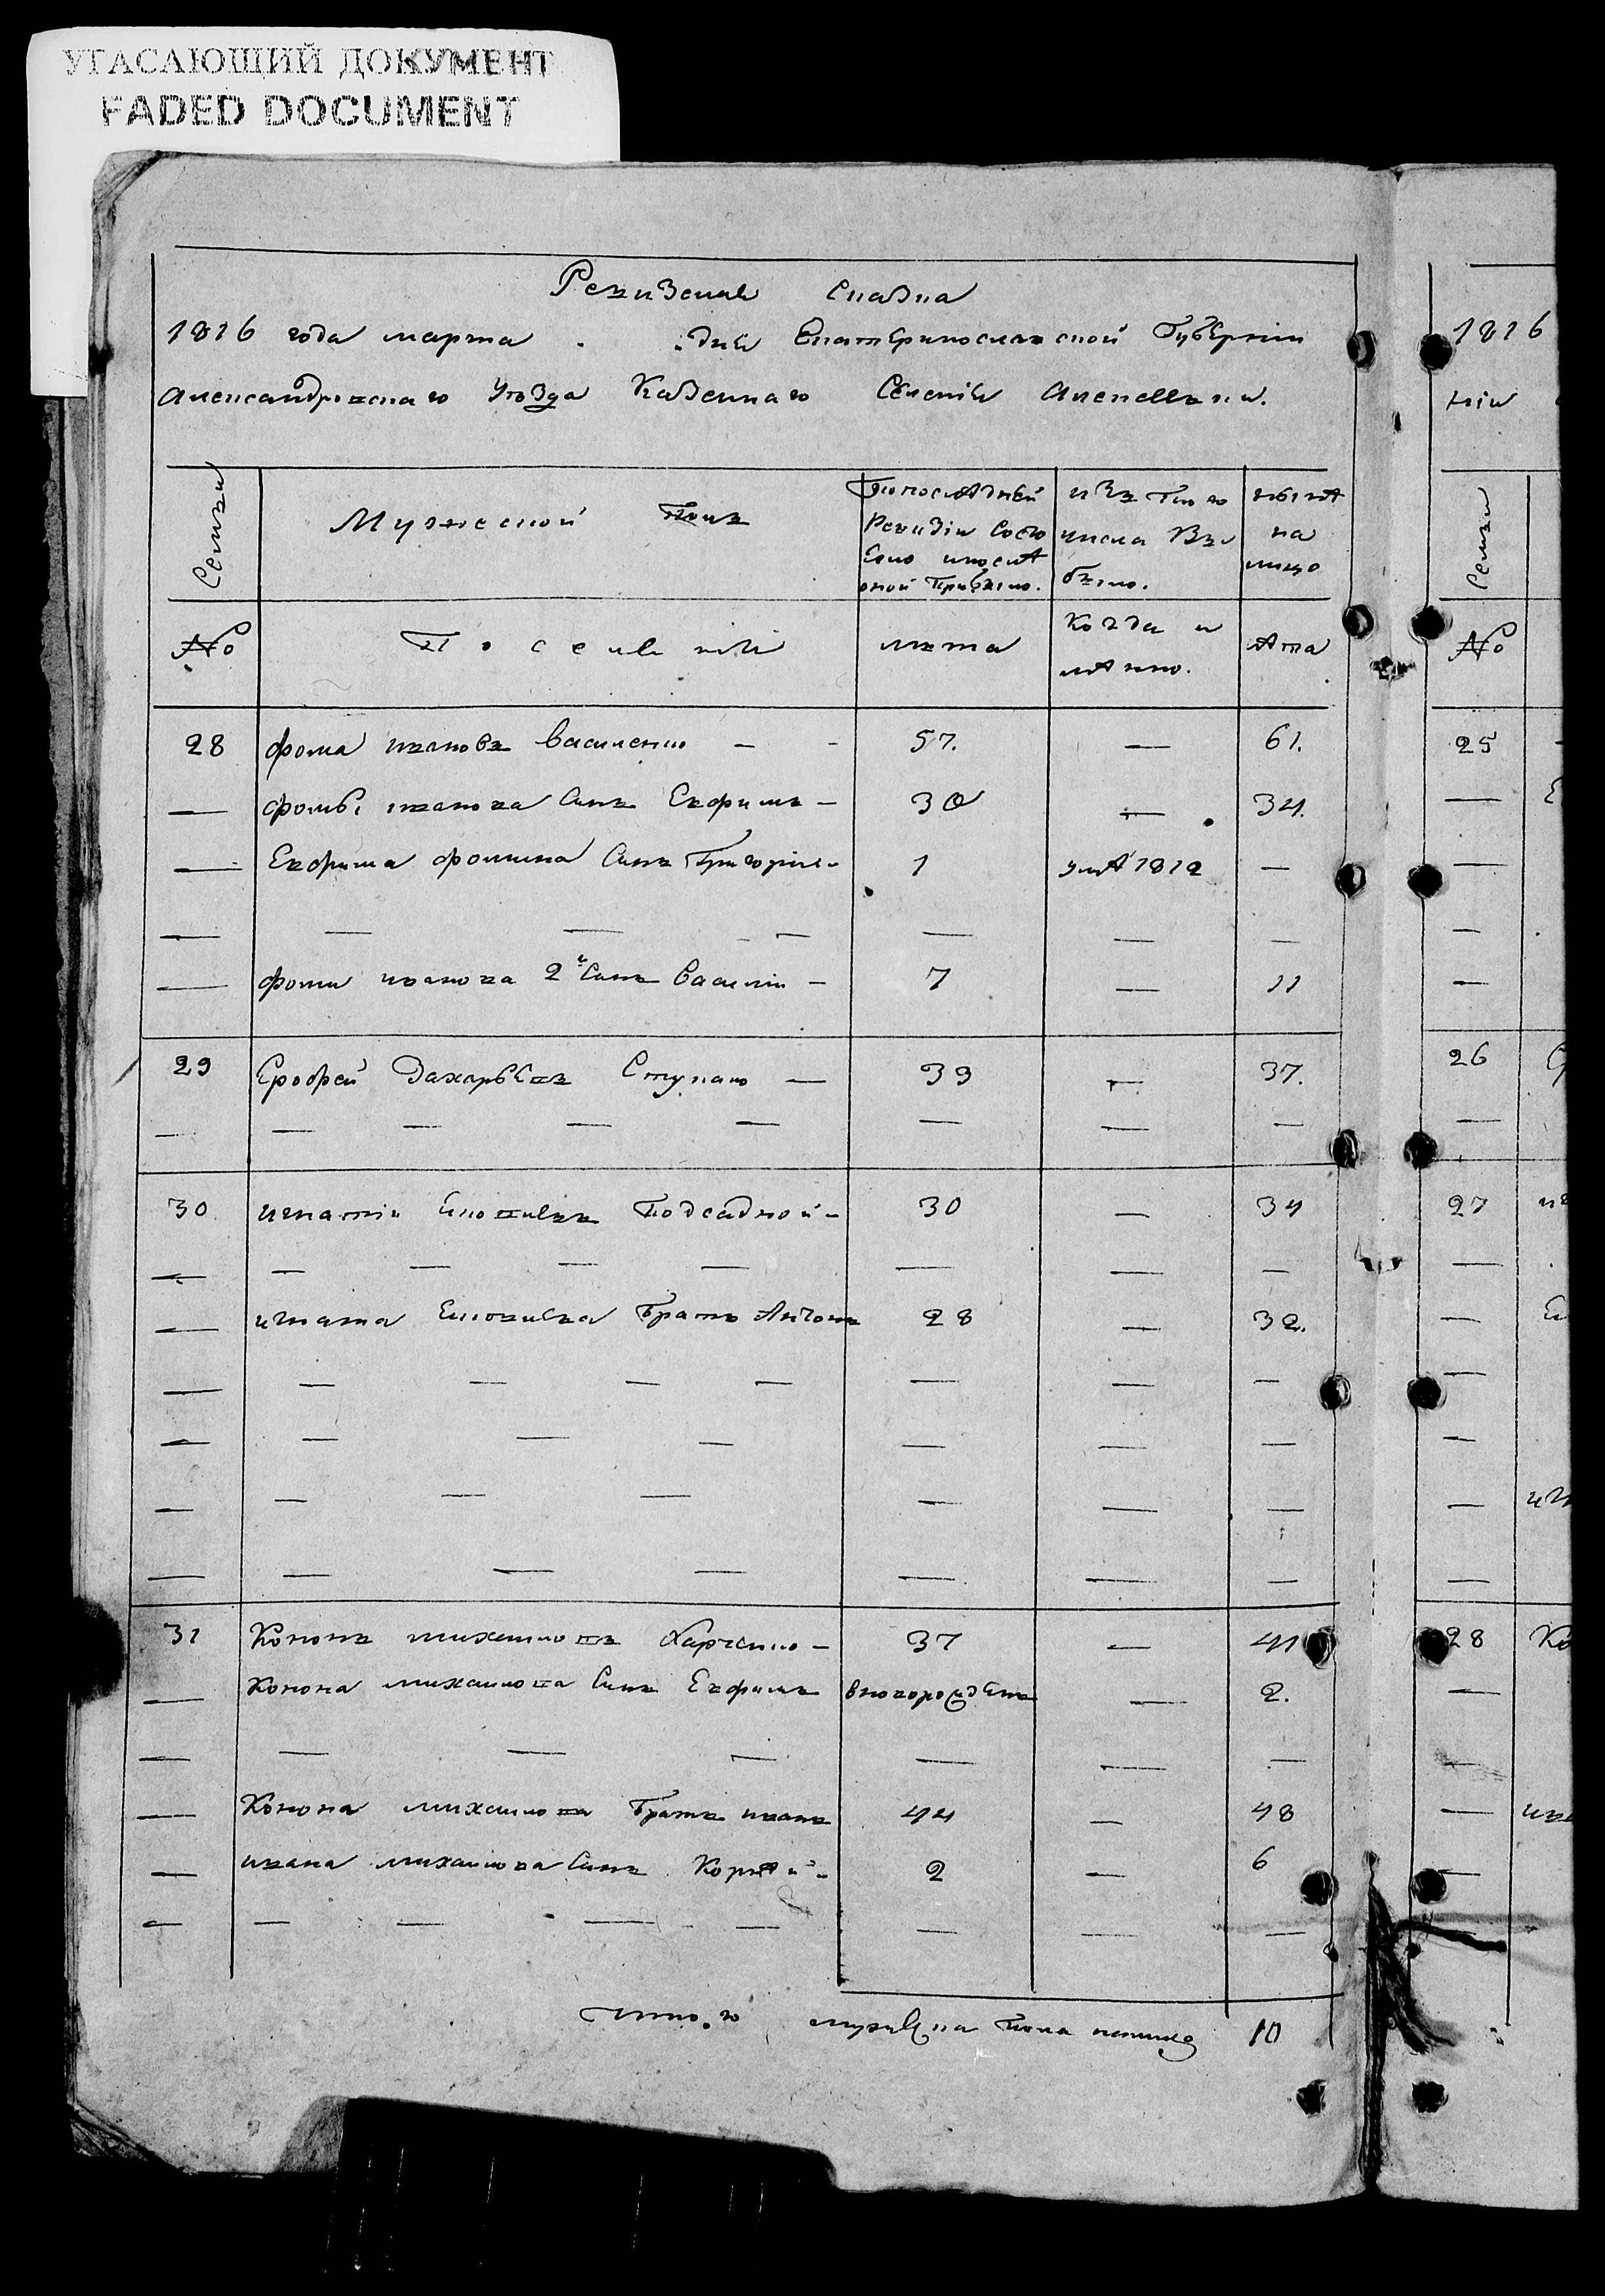 УГАСАЮЩИЙ ДОКУМЕНТ
FADED DOCUMENT
Ревизская Сказка
1816 года марта . дня Екатеринославской Губернiи
Александровского Уѣзда Казенного Селенiя Алексѣевки.
Семьи
Мужеской Полъ
По последней Ревизiи Состояло и после оной Прибыло.
изъ того числа Выбыло.
ныне на лицо
№
Поселяне
лѣта
Когда имянно.
лѣта
28 фома ивановъ Василенко — - 57. — 61.
— фомы иванова Синъ Евфимъ — 30 — 34.
— Евфима фомина Синъ Григорiй - 1 умѣ 1812 —
— — — — — — —
— фомы иванова 2й Синъ Василiй — 7 — 11
29 Ерофей Захарьевъ Ступакъ — 33 — 37.
— — — — — — — —
30 игнатiй Подсадной - 30 — 34
— — — — — — — —
— игната Братъ Антонъ 28 — 32.
— — — — — — — —
— — — — — — —
— — — — — — —
— — — — — — —
31 Кононъ михайловъ Харченко — 37 — 41
— Конона михайлова Синъ Евфимъ вноворожденъ — 2.
— — — — — — —
— Конона михайлова Братъ иванъ 44 — 48
— ивана михайлова Синъ Корнѣй - 2 — 6
— — — — — — — —
итого мужеска пола налицо 10
1816
нiи
Семьи
№
25
26
27
28 Ко